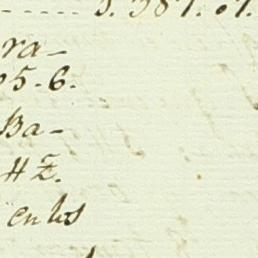 5.387.07.
ra-
05-6.
Ba-
HZ.
en los